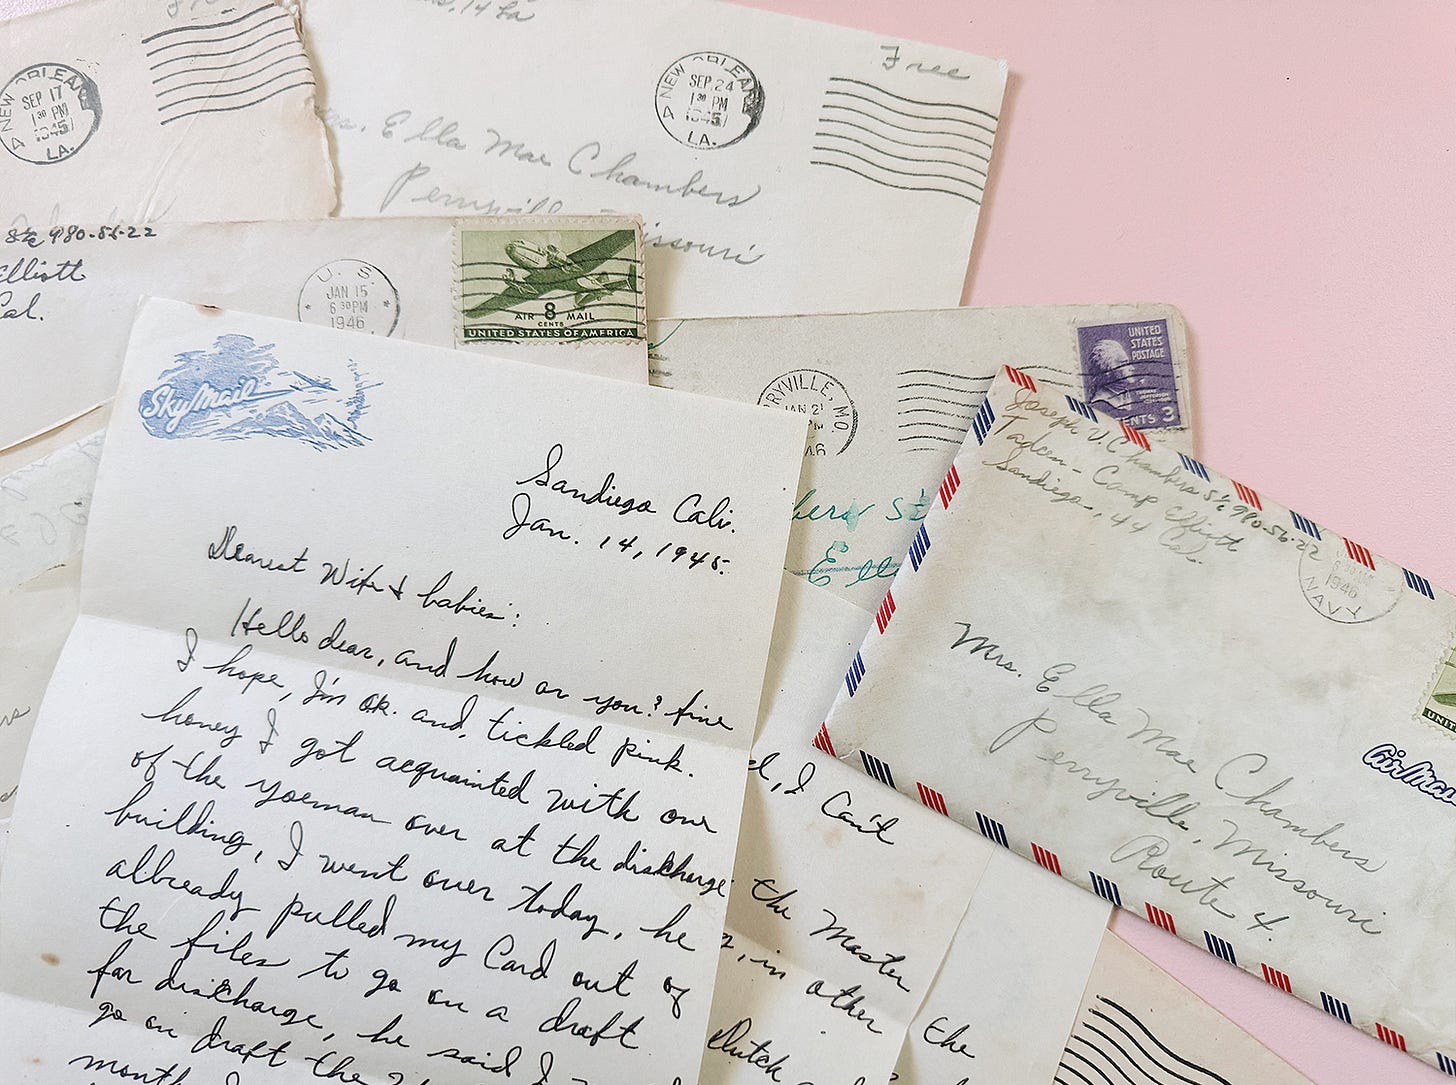 NEW ORLEANS
SEP 17
1 30 PM
1945
LA.
Free
NEW ORLEANS
SEP 24
1 30 PM
1945
LA.
Ella Mae Chambers
Perryville
Missouri
S 2/c 980-56-22
Elliott
Cal.
U. S.
JAN 15
6 30 PM
1946
AIR 8 MAIL
CENTS
UNITED STATES OF AMERICA
Sky Mail
Sandiego Cali.
Jan. 14, 1945.
Dearest Wife & babies:
Hello dear, and how or you? fine
I hope, I'm ok. and, tickled pink.
honey I got acquainted with one
of the yoeman over at the discharge
building, I went over today, he
allready pulled my Card out of
the files to go on a draft
for discharge, he said I
go on draft the
month
RYVILLE, MO.
JAN 2
UNITED
STATES
POSTAGE
THOMAS JEFFERSON
CENTS 3
bers
Ell
Joseph V. Chambers S 2/c 980-56-22
Tadcen - Camp Elliott
Sandiego, 44 Cal.
1946
NAVY
Mrs. Ella Mae Chambers
Perryville, Missouri
Route 4.
UNIT
Air Mai
d, I Can't
the Master
in other
the
Dutch